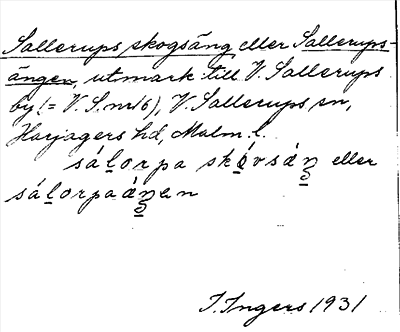 Sallerups skogsäng eller Sallerups-
ängen, utmark till V. Sallerups
by (= V. S. nr 16), V. Sallerups sn,
Harjagers hd, Malm. l.
sálorpa skóvsáŋ eller
sálorpaáŋen
I. Ingers 1931